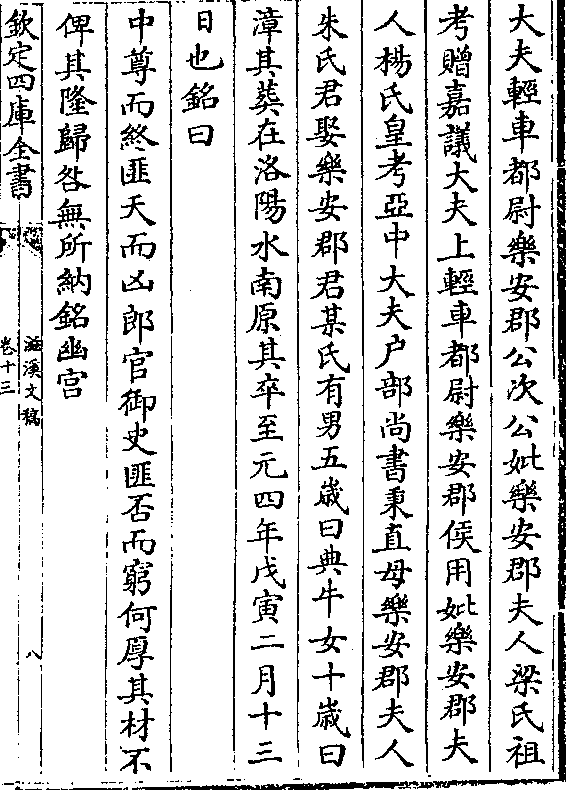 大夫輕車都尉樂安郡公次公妣樂安郡夫人梁氏祖
考贈嘉議大夫上輕車都尉樂安郡侯用妣樂安郡夫
人楊氏皇考亞中大夫户部尚書秉直母樂安郡夫人
朱氏君娶樂安郡君某氏有男五歲曰典牛女十歲曰
漳其葬在洛陽水南原其卒至元四年戊寅二月十三
日也銘曰
中尊而終匪夭而凶郎官御史匪否而窮何厚其材不
俾其隆歸咎無所納銘幽宫
欽定四庫全書
滋溪文稿
卷十三
八